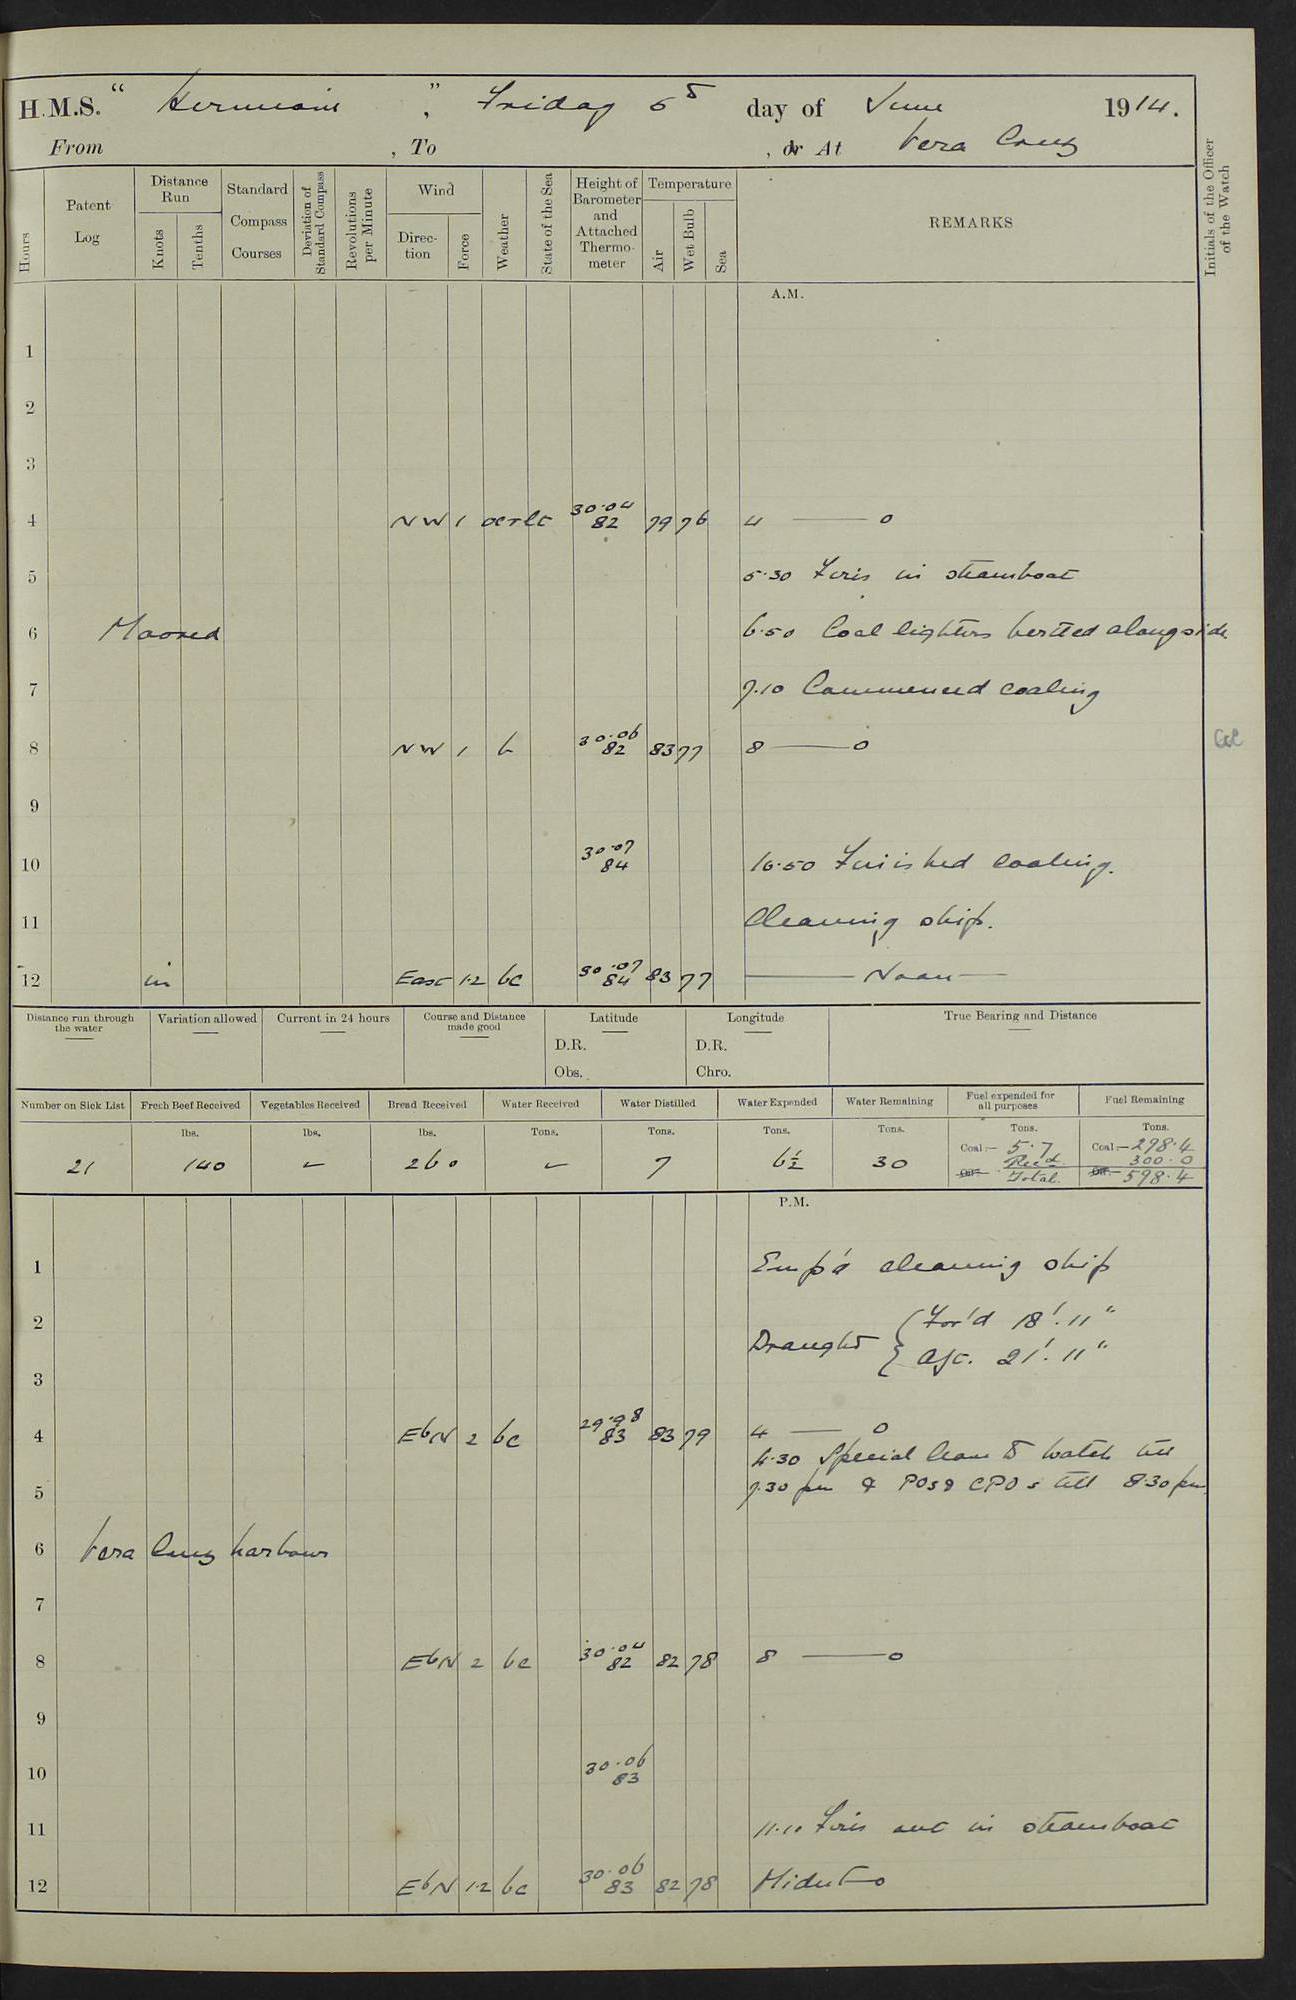 H.M.S. " Hermione " , Friday 5th day of June 1914.
From , To , or At Vera Cruz
Hours
Patent Log
Distance Run
Knots
Tenths
Standard Compass Courses
Deviation of Standard Compass
Revolutions per Minute
Wind
Direction
Force
Weather
State of the Sea
Height of Barometer and Attached Thermometer
Temperature
Air
Wet Bulb
Sea
REMARKS
Initials of the Officer of the Watch
A.M.
1
2
3
4 NW 1 30.04 82 79 76 4 — 0
5 5.30 Fires in steamboat
6 Moored 6.50 Coal lighters berthed alongside
7 7.10 Commenced coaling
8 NW 1 b 30.06 82 83 77 8 — 0
9
10 30.07 84 10.50 Finished coaling.
11 Cleaning ship.
12 in East 1.2 bc 30.07 84 83 77 — Noon —
Distance run through the water
Variation allowed
Current in 24 hours
Course and Distance made good
Latitude
D.R.
Obs.
Longitude
D.R.
Chro.
True Bearing and Distance
Number on Sick List
Fresh Beef Received
Vegetables Received
Bread Received
Water Received
Water Distilled
Water Expended
Water Remaining
Fuel expended for all purposes
Fuel Remaining
lbs. lbs. lbs. Tons. Tons. Tons. Tons. Tons. Tons.
21 140 ✓ 260 ✓ 7 6½ 30 Coal:— 5.7 Coal:— 298.4
Rec'd. 300.0
Oil:— Total. Oil:— 598.4
P.M.
1 Emp'd cleaning ship
2 Draught { For'd 18'.11"
3 Aft. 21'.11"
4 EbN 2 bc 29.98 83 83 79 4 — 0
4.30 Special leave to watch till
5 7.30 pm & POs & CPOs till 8.30 pm
6 Vera Cruz harbour
7
8 EbN 2 bc 30.04 82 82 78 8 — 0
9
10 30.06 83
11 11.10 Fires out in steamboat
12 EbN 1.2 bc 30.06 83 82 78 Midnt — 0